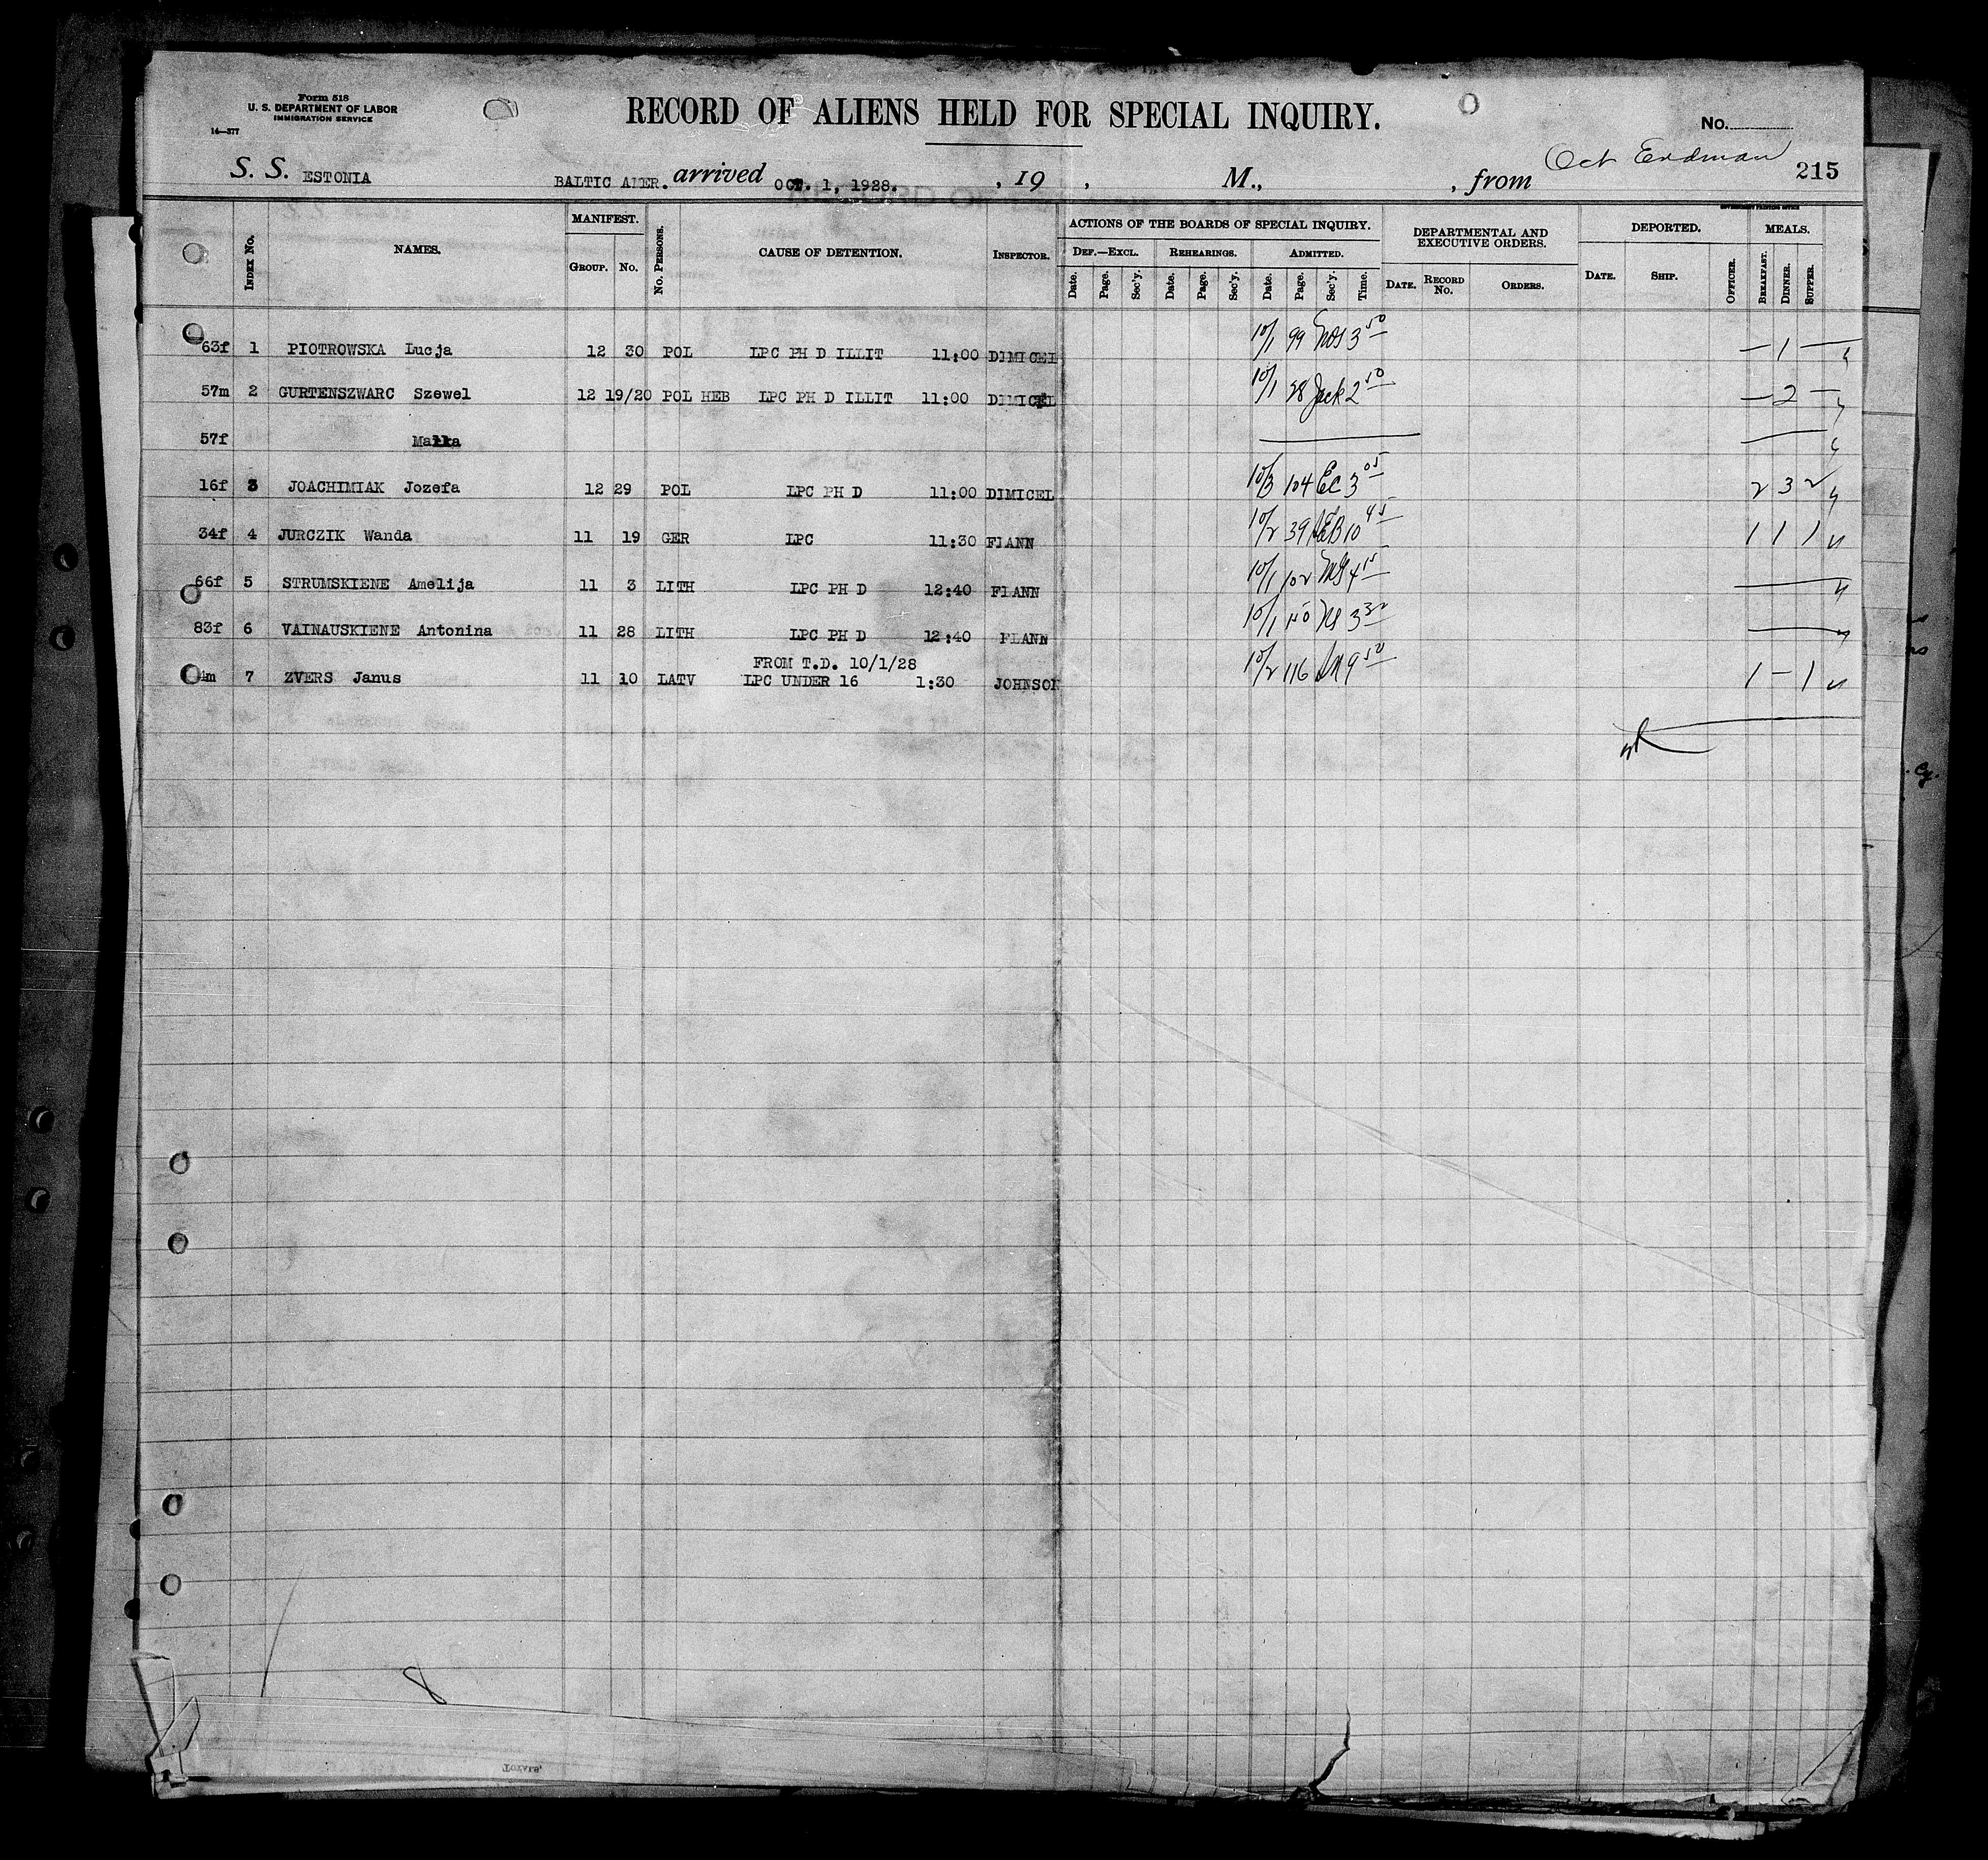 Form 518
U. S. DEPARTMENT OF LABOR
IMMIGRATION SERVICE
14—377
RECORD OF ALIENS HELD FOR SPECIAL INQUIRY.
No.
S. S. ESTONIA BALTIC AMER. arrived OCT. 1, 1928. , 19 , M., , from Oct Erdman 215
GOVERNMENT PRINTING OFFICE
INDEX No. NAMES. MANIFEST. No. PERSONS. CAUSE OF DETENTION. INSPECTOR. ACTIONS OF THE BOARDS OF SPECIAL INQUIRY. DEPARTMENTAL AND EXECUTIVE ORDERS. DEPORTED. MEALS.
GROUP. No. DEF.—EXCL. REHEARINGS. ADMITTED.
Date. Page. Sec'y. Date. Page. Sec'y. Date. Page. Sec'y. Time. DATE. RECORD No. ORDERS. DATE. SHIP. OFFICER. BREAKFAST. DINNER. SUPPER.
63f 1 PIOTROWSKA Lucja 12 30 POL LPC PH D ILLIT 11:00 DIMICEL 10/1 99 3 50 — 1 —
57m 2 GURTENSZWARC Szewel 12 19/20 POL HEB LPC PH D ILLIT 11:00 DIMICEL 10/1 38 Jack 2 50 — 2 —
57f Malka
16f 3 JOACHIMIAK Jozefa 12 29 POL LPC PH D 11:00 DIMICEL 10/3 104 EC 3 05 2 3 2
34f 4 JURCZIK Wanda 11 19 GER LPC 11:30 FLANN 10/2 39 10 45 1 1 1
66f 5 STRUMSKIENE Amelija 11 3 LITH LPC PH D 12:40 FLANN 10/1 102 4 15
83f 6 VAINAUSKIENE Antonina 11 28 LITH LPC PH D 12:40 FLANN 10/1 3 32
FROM T.D. 10/1/28
4m 7 ZVERS Janus 11 10 LATV LPC UNDER 16 1:30 JOHNSON 10/2 116 9 50 1 — 1
8